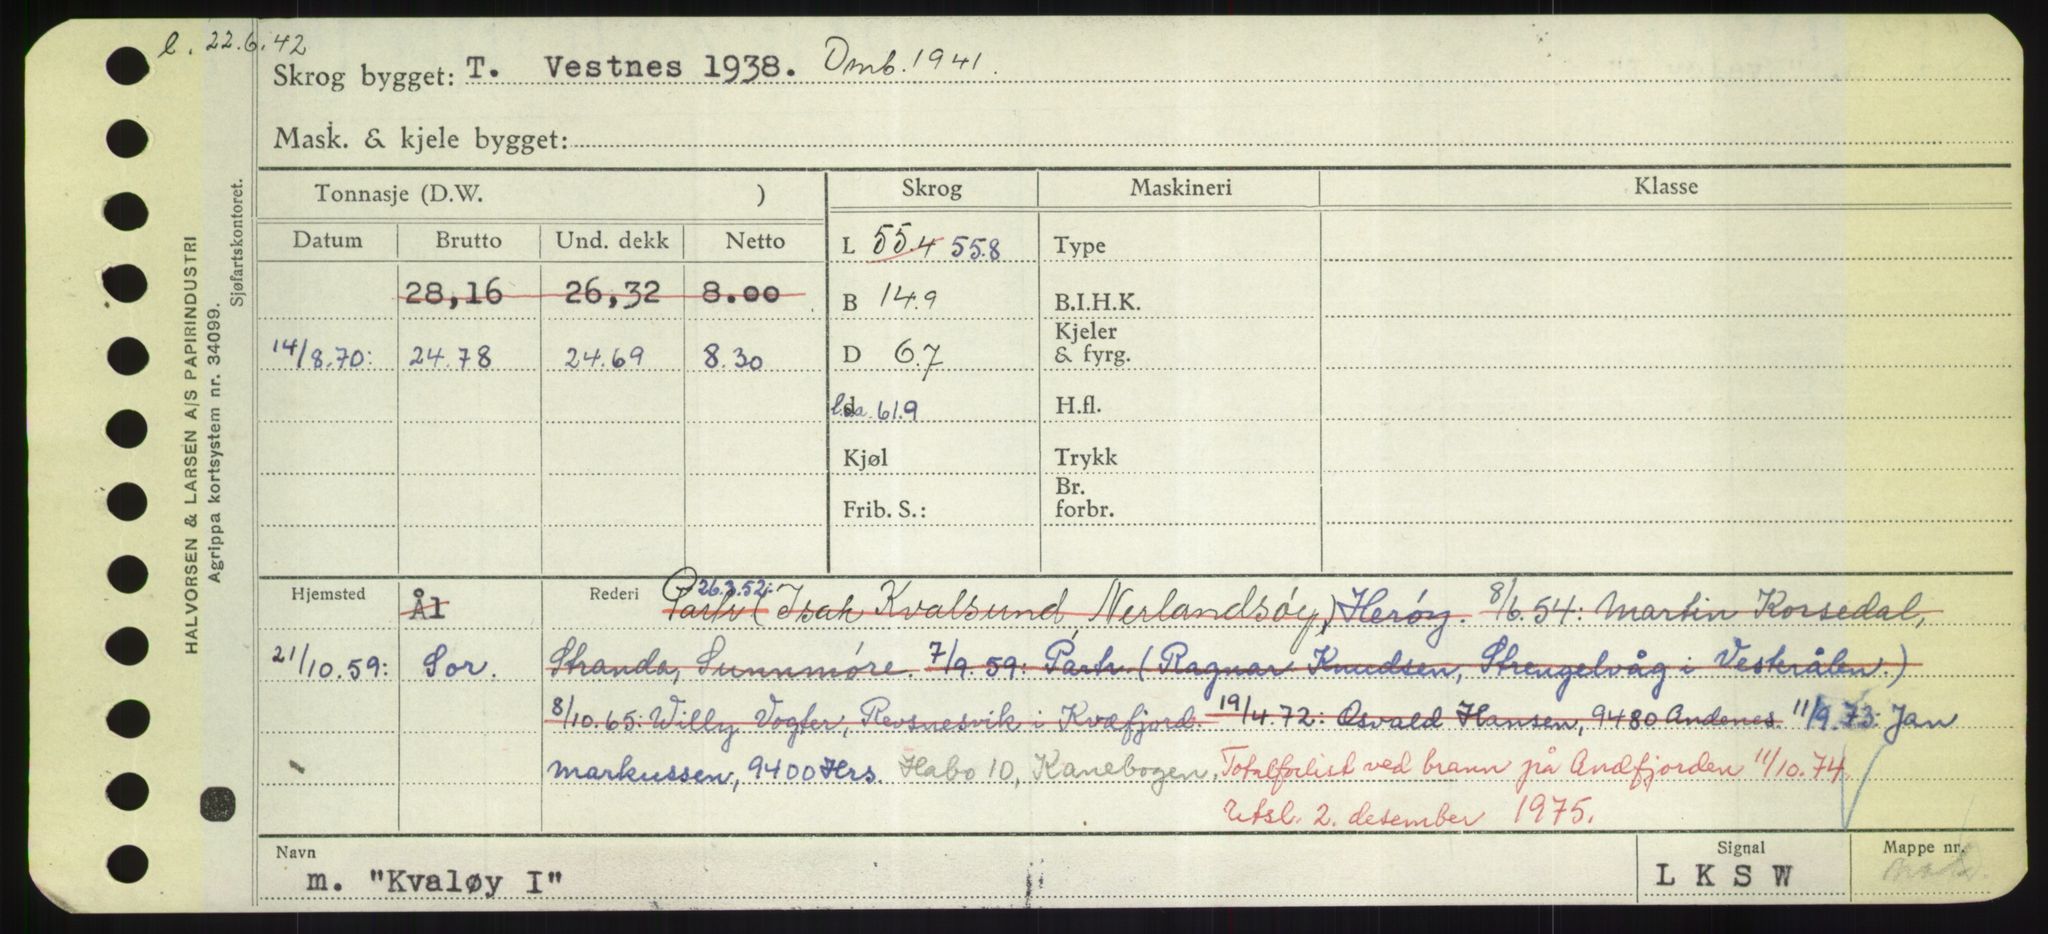 l. 22.6.42
Skrog bygget: T. Vestnes 1938. Omb. 1941.
Mask. & kjele bygget:
Tonnasje (D.W. ) Skrog Maskineri Klasse
Datum Brutto Und. dekk Netto L 55.4 55.8 Type
28,16 26,32 8.00 B 14.9 B.I.H.K.
14/8.70: 24.78 24.69 8.30 D 6.7 Kjeler & fyrg.
d l.oa 61.9 H.fl.
Kjøl Trykk
Frib. S.: Br. forbr.
Hjemsted Ål Rederi 26.3.52: Partr. (Isak Kvalsund, Nerlandsøy) Herøy. 8/6.54: Martin Korsedal,
21/10.59: Sor. Stranda, Sunnmøre. 7/9.59: Partr. (Ragnar Knudsen, Strengelvåg i Vesterålen.)
8/10.65: Willy Vogter, Revsnesvik i Kvæfjord. 19/4.72: Osvald Hansen, 9480 Andenes. 11/9.73: Jan
Markussen, 9400 Hrs. Habo 10, Kanebogen. Totalforlist ved brann på Andfjorden 11/10.74
Utsl. 2. desember 1975.
Navn Signal Mappe nr.
m. "Kvaløy I" L K S W
HALVORSEN & LARSEN A/S PAPIRINDUSTRI
Agrippa kortsystem nr. 34099.
Sjøfartskontoret.